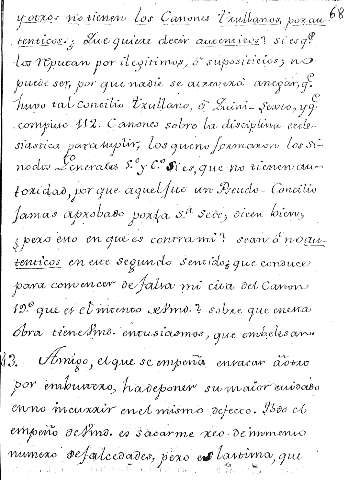 68
y otros no tienen los Canones Trullanos, por au-
tenticos. ¿Que quiere decir autenticos? si es q.e
los reputan por ilegitimos, ó supositicios; no
puede ser, por que nadie se atreverá a negar, q.e
huvo tal Concilio Trullano, ó Quini-Sexto, y q.e
compuso 112. Canones sobre la disciplina ecle-
siastica para suplir, los que no formaron los Si-
nodos Generales 5.o y 6.o Si es, que no tienen au-
toridad, por que aquel fue un Pseudo-Concilio
jamas aprobado por la S.ta Sede, dicen bien,
¿pero esto en que es contra mi? sean ó no au-
tenticos en ese segundo sentido ¿que conduce
para convencer de falsa mi cita del Canon
19.o que es el intento de Vmd.? sobre que en esta
Obra tiene Vmd. entusiasmos, que embelesan.
43. Amigo, el que se empeña en sacar á otro
por embustero, ha de poner su maior cuidado
en no incurrir en el mismo defecto. Todo el
empeño de Vmd. es sacarme reo de inmenso
numero de falcedades, pero es lastima, que